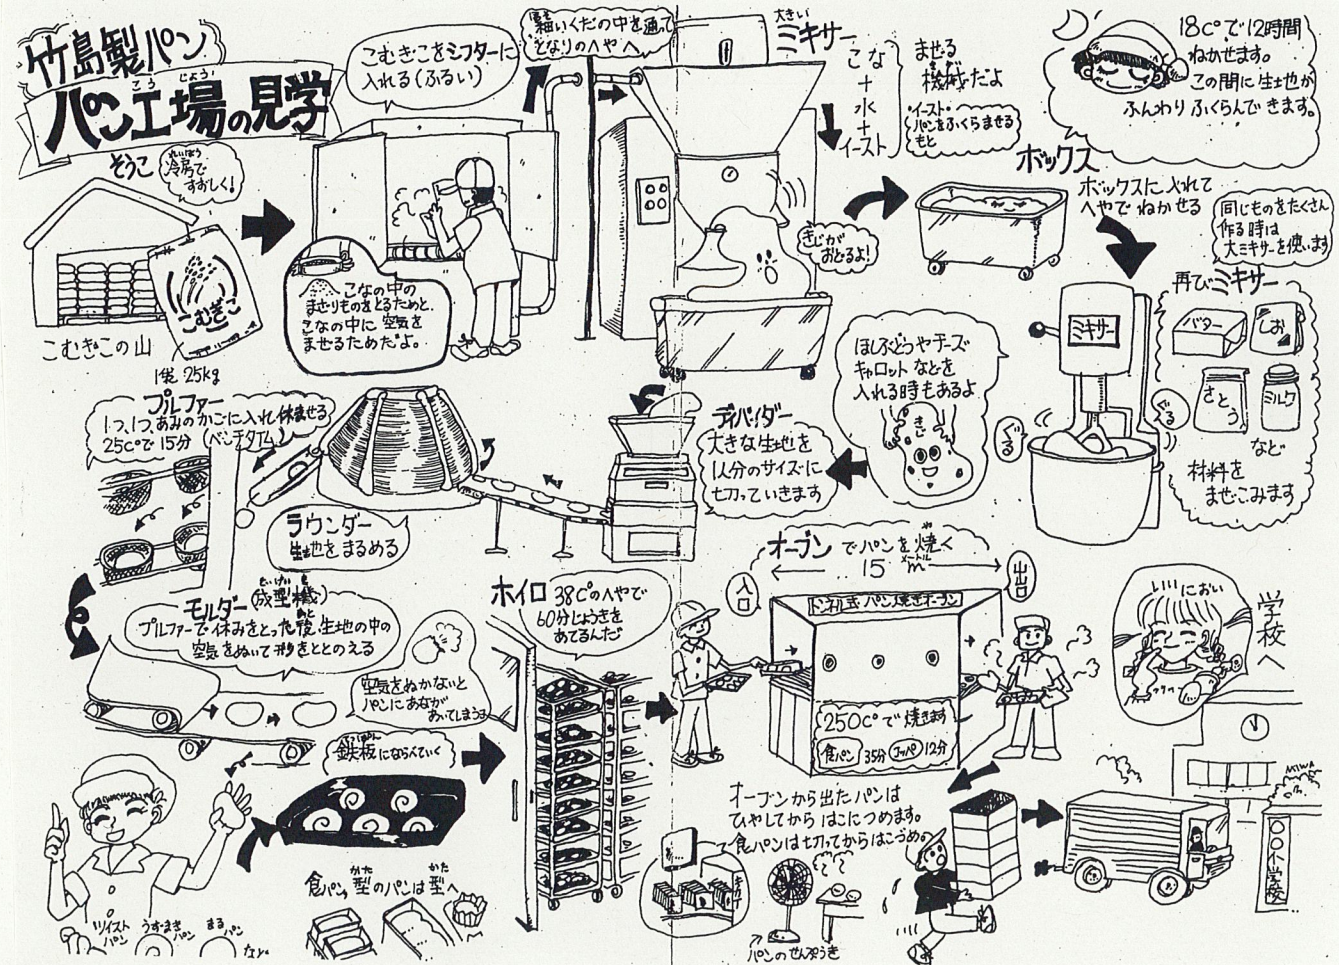 竹島製パン
パン工場の見学
こう じょう
そうこ
れいぼう
冷房で
すずしく!
こむぎこ
こむぎこの山
1袋 25kg
こむぎこをシフターに
入れる(ふるい)
こなの中の
まざりものをとるためと、
こなの中に空気を
ませるためだよ。
細いくだの中を通って
となりのへやへ
大きい
ミキサー
こな
+
水
+
イースト
まぜる
機械だよ
・イースト・
パンをふくらませる
もと
きじが
おどるよ!
18C°で12時間
ねかせます。
この間に生地が
ふんわりふくらんできます。
ボックス
ボックスに入れて
へやでねかせる
同じものをたくさん
作る時は
大ミキサーを使います
再びミキサー
ミキサー
バター
しお
さとう
ミルク
など
材料を
まぜこみます
ぐる
ぐる
ほしぶどうやチーズ
キャロットなどを
入れる時もあるよ
きじ
ディバイダー
大きな生地を
1人分のサイズに
切っていきます
ラウンダー
生地をまるめる
プルファー
1つ、1つ、あみのかごに入れ休ませる
25C°で15分 (ベンチタイム)
モルダー(成型機)
せいけいき
プルファーで休みをとった後、生地の中の
あと
空気をぬいて形をととのえる
空気をぬかないと
パンにあなが
あいてしまうよ
てっぱん
鉄板にならべていく
ツイスト
パン
うずまき
パン
まる
パン
など
食パン、型のパンは型へ
かた かた
ホイロ
38C°のへやで
60分じょうきを
あてるんだ
オーブン でパンを焼く
や
15m
メートル
入口
出口
トンネル式パン焼きオーブン
250C°で焼きます
食パン 35分 コッペ 12分
オーブンから出たパンは
ひやしてからはこにつめます。
食パンは切ってからはこづめ。
パンのせんぷうき
いいにおい
学校へ
○○小学校